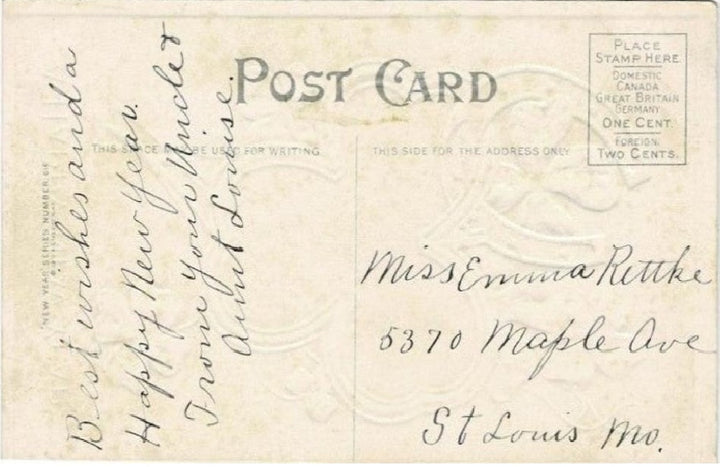 POST CARD
PLACE
STAMP HERE
DOMESTIC
CANADA
GREAT BRITAIN
GERMANY
ONE CENT.
FOREIGN
TWO CENTS.
THIS SPACE MAY BE USED FOR WRITING.
THIS SIDE FOR THE ADDRESS ONLY
NEW YEAR SERIES NUMBER
Best wishes and a
Happy New Year.
From your Uncle &
Aunt Louise.
Miss Emma Rettke
5370 Maple Ave
St Louis Mo.